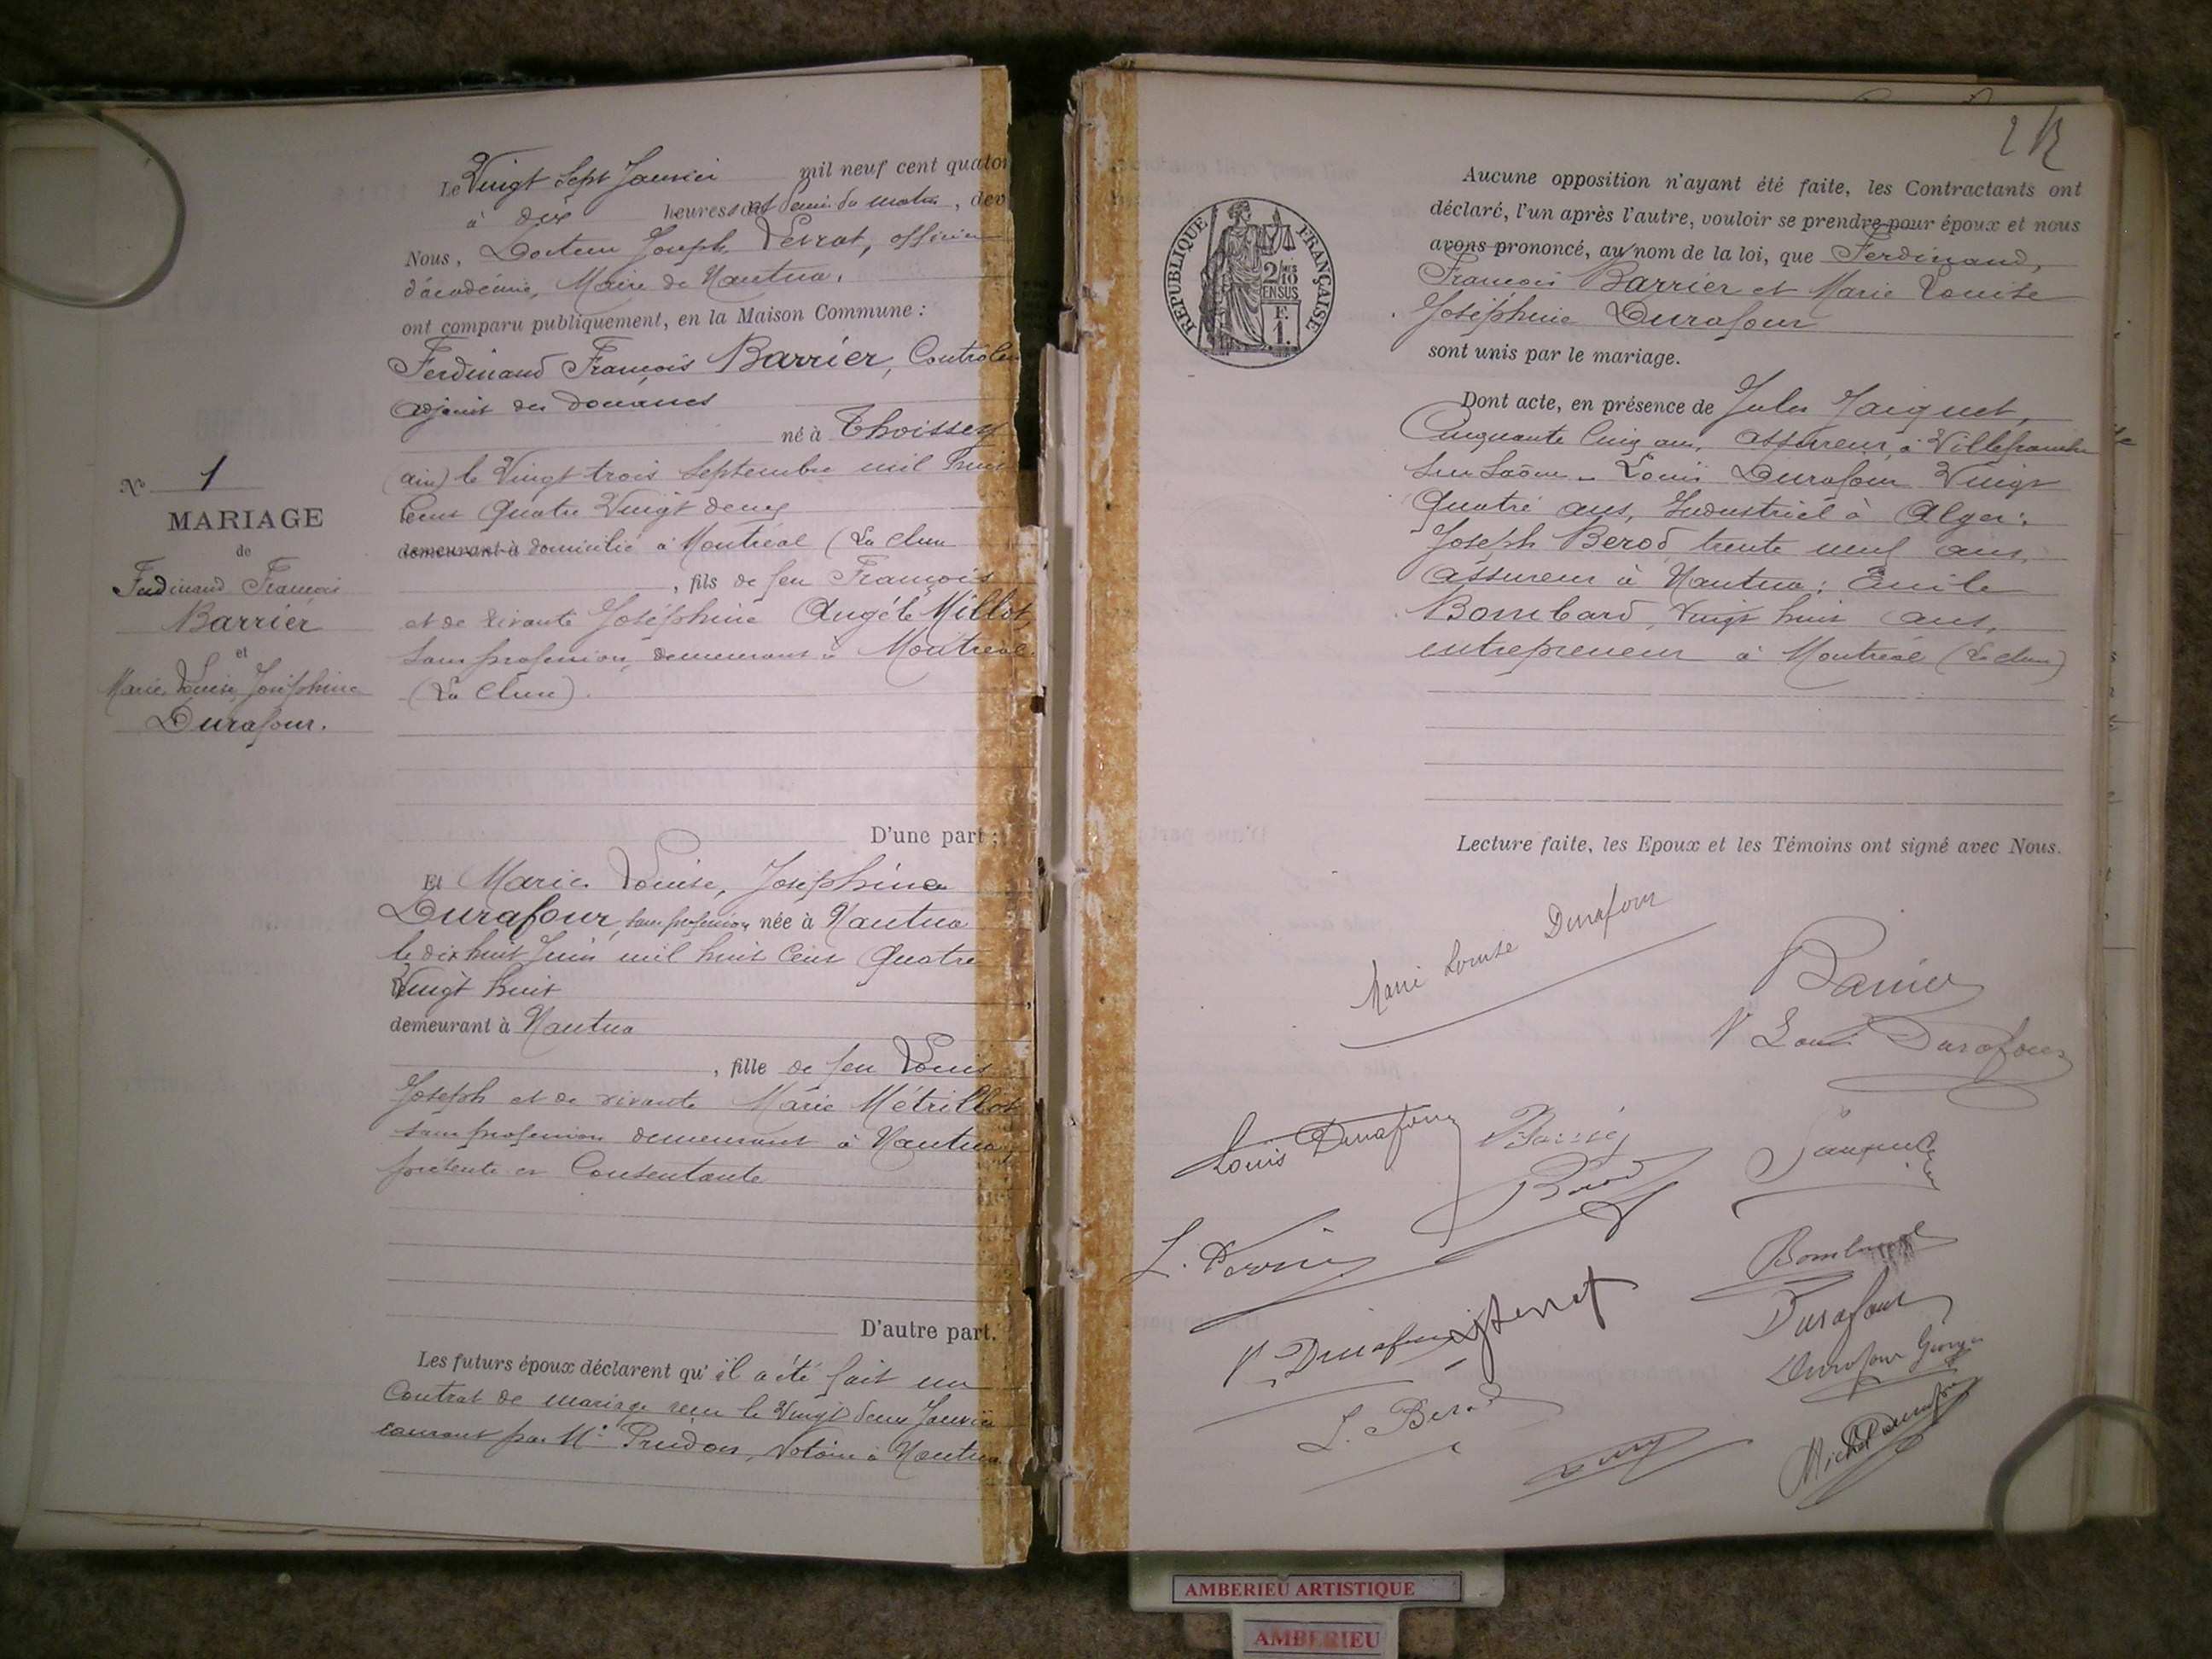 N° 1
MARIAGE
de
Ferdinand François
Barrier
et
Marie Louise Joséphine
Durafour.
Le Vingt sept Janvier mil neuf cent quator
à dix heures et demi du matin, dev
Nous, Docteur Joseph Levrat, officier
d'académie, Maire de Nantua.
ont comparu publiquement, en la Maison Commune :
Ferdinand François Barrier, Contrôleur
adjoint des douanes
né à Thoissey
(ain) le Vingt trois Septembre mil huit
Cent Quatre Vingt deux
demeurant à domicilié à Montréal (La Cluse
, fils de feu François
et de vivante Joséphine Angèle Millot,
sans profession, demeurant à Montréal
(La Cluse).
D'une part ;
Et Marie Louise, Joséphine
Durafour, sans profession née à Nantua
le dix huit Juin mil huit Cent Quatre
Vingt huit
demeurant à Nantua
, fille de feu Louis
Joseph et de vivante Marie Métrillot
sans profession demeurant à Nantua
présente et Consentante
D'autre part.
Les futurs époux déclarent qu'il a été fait un
Contrat de mariage reçu le Vingt deux Janvier
courant par Me Prudon, Notaire à Nantua
2
REPUBLIQUE FRANÇAISE
2/10
EN SUS
F.
1.
Aucune opposition n'ayant été faite, les Contractants ont
déclaré, l'un après l'autre, vouloir se prendre pour époux et nous
avons prononcé, au nom de la loi, que Ferdinand,
François Barrier et Marie Louise
Joséphine Durafour
sont unis par le mariage.
Dont acte, en présence de Jules Jaiquet,
Cinquante Cinq ans, assureur, à Villefranche
sur Saône - Louis Durafour Vingt
Quatre ans, Industriel à Alger :
Joseph Berod, trente neuf ans,
assureur à Nantua : Emile
Bombard, vingt huit ans,
entrepreneur à Montréal (La Cluse)
Lecture faite, les Epoux et les Témoins ont signé avec Nous.
Marie Louise Durafour
Barrier
V Louis Durafour
Louis Durafour
Berod
Bombard
V. Durafour
Durafour
Durafour Georges
L. Berod
Michel Durafour
AMBERIEU ARTISTIQUE
AMBERIEU